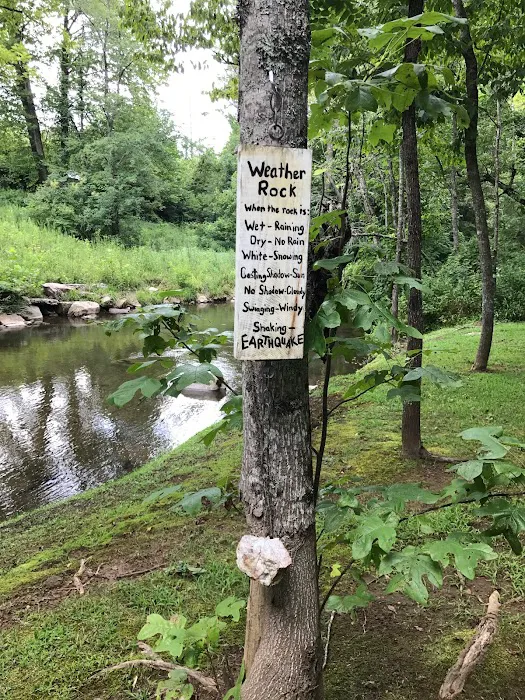 Weather
Rock
When the rock is:
Wet - Raining
Dry - No Rain
White - Snowing
Casting Shadow - Sun
No Shadow - Cloudy
Swinging - Windy
Shaking -
EARTHQUAKE